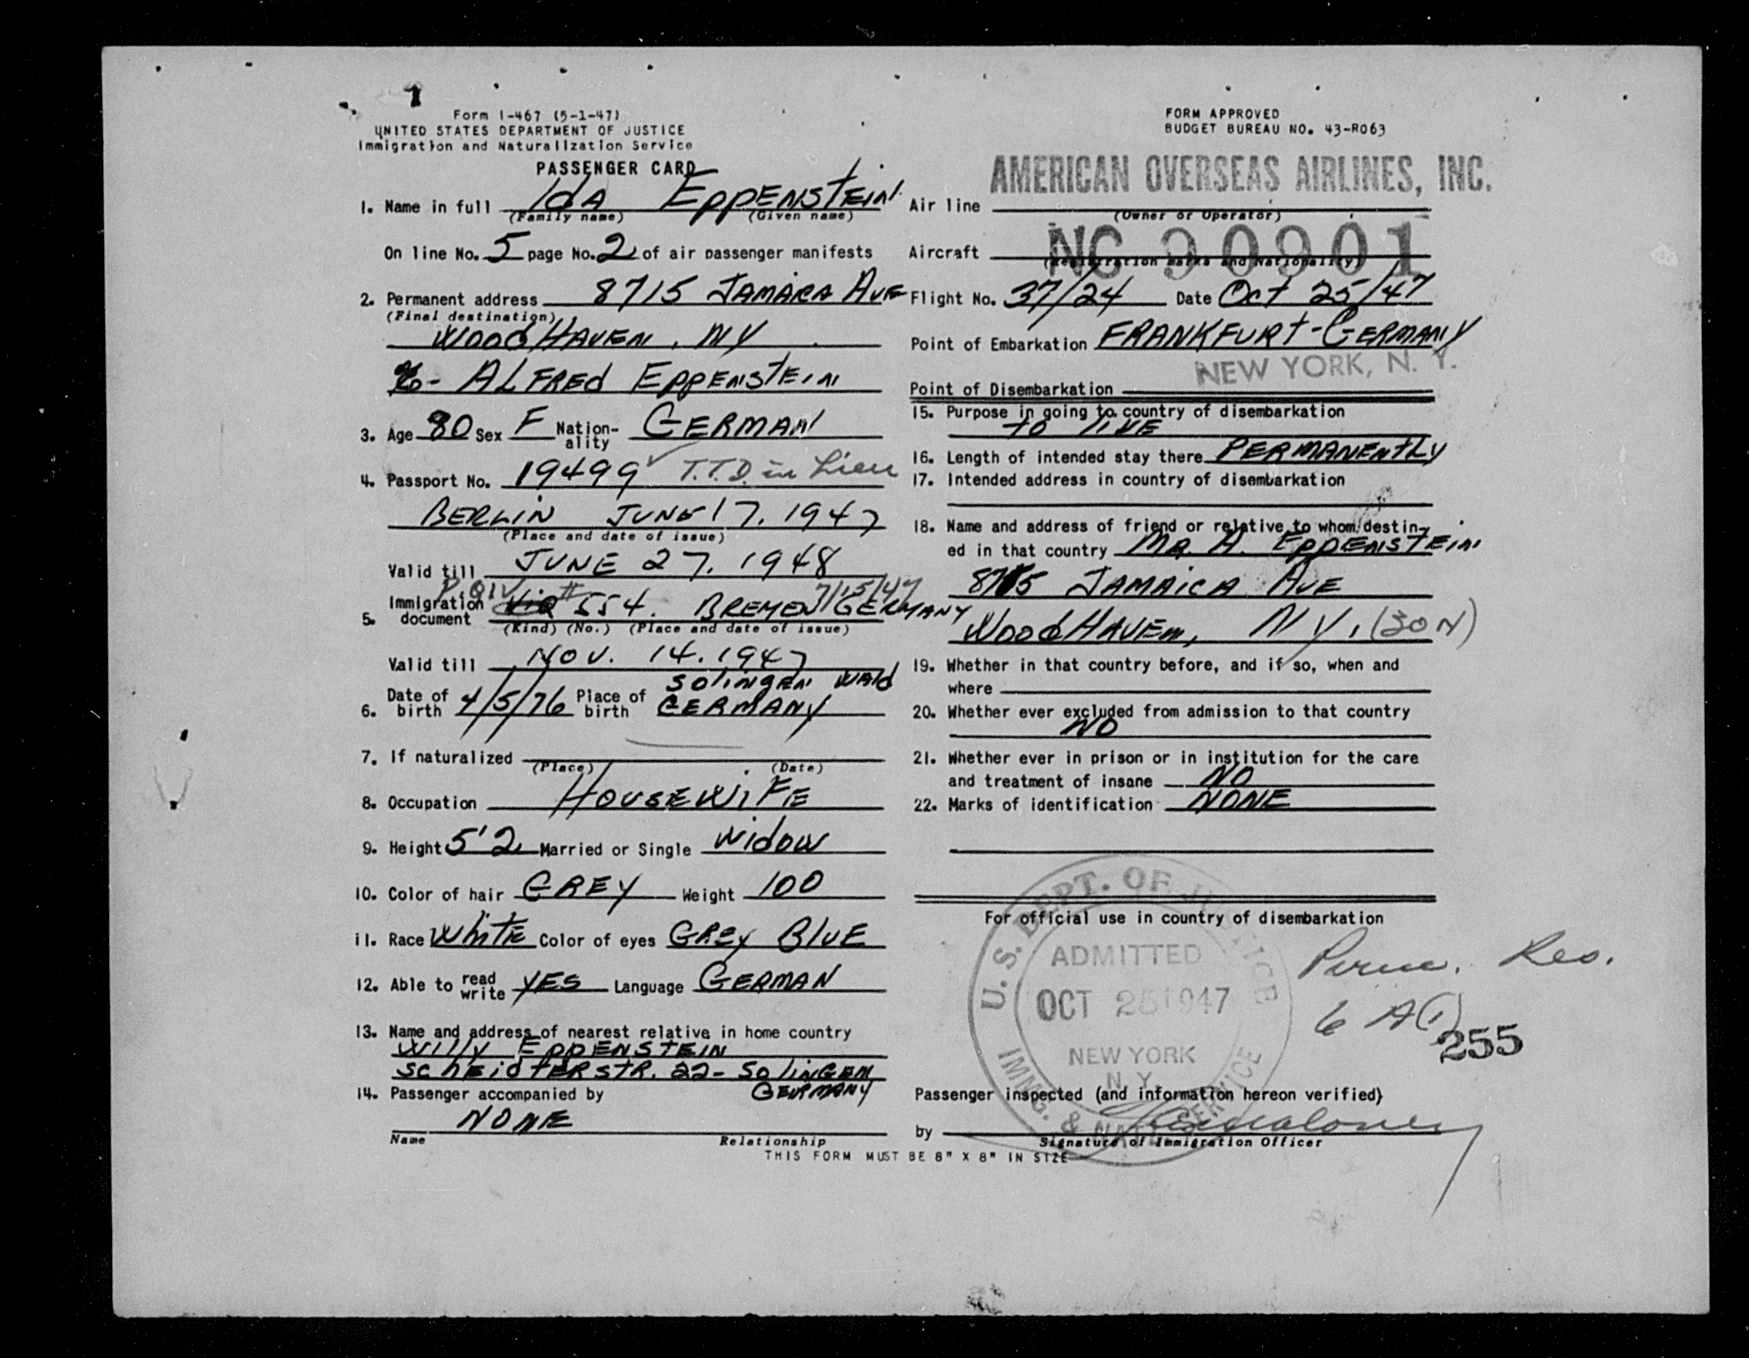 1
Form I-467 (5-1-47)
UNITED STATES DEPARTMENT OF JUSTICE
Immigration and Naturalization Service
PASSENGER CARD
FORM APPROVED
BUDGET BUREAU NO. 43-R063
1. Name in full IdA EppENSTEIN
(Family name) (Given name)
On line No. 5 page No. 2 of air passenger manifests
2. Permanent address 8715 JAMAICA AVE
(Final destination)
WOOdHAVEN, NY
℅- ALFREd EppENSTEIN
3. Age 80 Sex F Nation-ality GERMAN
4. Passport No. 19499 T.T.D. in Lieu
BERLIN JUNE 17, 1947
(Place and date of issue)
Valid till JUNE 27, 1948
5. Immigration document # 554. BREMEN GERMANY 7/15/47
(Kind) (No.) (Place and date of issue)
Valid till NOV. 14. 1947
6. Date of birth 4/5/76 Place of birth SOLINGEN WALD GERMANY
7. If naturalized
(Place) (Date)
8. Occupation HOUSEWIFE
9. Height 5'2 Married or Single WIDOW
10. Color of hair GREY Weight 100
11. Race WhITE Color of eyes GREY BLUE
12. Able to read write YES Language GERMAN
13. Name and address of nearest relative in home country
WILLY EPPENSTEIN
SCHEIdTERSTR. 22- SOLINGEN
GERMANY
14. Passenger accompanied by
NONE
Name Relationship
AMERICAN OVERSEAS AIRLINES, INC.
Air line
(Owner or Operator)
Aircraft NC 90901
(Registration marks and Nationality)
Flight No. 37/24 Date Oct 25/47
Point of Embarkation FRANKFURT-GERMANY
NEW YORK, N. Y.
Point of Disembarkation
15. Purpose in going to country of disembarkation
TO LIVE
16. Length of intended stay there PERMANENTLY
17. Intended address in country of disembarkation
18. Name and address of friend or relative to whom destin-
ed in that country MR. A. EPPENSTEIN
8715 JAMAICA AVE
WOOdHAVEN, NY, (SON)
19. Whether in that country before, and if so, when and
where
20. Whether ever excluded from admission to that country
NO
21. Whether ever in prison or in institution for the care
and treatment of insane NO
22. Marks of identification NONE
For official use in country of disembarkation
U.S. DEPT. OF JUSTICE
ADMITTED
OCT 25 1947
NEW YORK
N.Y.
IMMG. & NATZ. SERVICE
Perm. Res.
6 A(1)
255
Passenger inspected (and information hereon verified)
by
Signature of Immigration Officer
THIS FORM MUST BE 8" X 8" IN SIZE